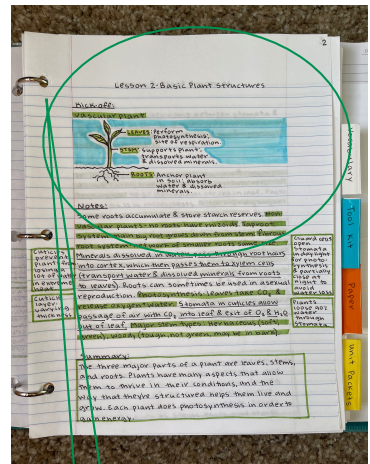 2
Lesson 2-Basic Plant Structures
Kick-off:
Vascular plant
LEAVES: Perform
photosynthesis;
site of respiration.
STEM: Supports plant;
transports water
& dissolved minerals.
ROOTS: Anchor plant
in soil; absorb
water & dissolved
minerals.
Notes:
Some roots accumulate & store starch reserves. Non
vascular plants no roots have rhizoids. Taproot
system main big root grows down
root system
Minerals dissolved in water pass through root hairs
into cortex, which then passes them to xylem cells
(transport water & dissolved minerals from roots
to leaves). Roots can sometimes be used in asexual
reproduction. Photosynthesis: leaves
Stomata in cuticles allow
passage of air with CO2 into leaf & exit of O2 & H2O
out of leaf. Major stem types: herbaceous (soft,
green), woody (tough, not green, may be in bark).
Cuticles
prevent
plant from
losing a
lot of H2O
in extreme
Cuticle
layer:
varying
thickness
Guard cells
open
stomata
in daylight
for photo-
synthesis
& partially
close at
night to
avoid
water loss
Plants
loose H2O
water
through
stomata
Summary:
The three major parts of a plant are leaves, stems,
and roots. Plants have many aspects that allow
them to thrive in their conditions, and the
way that they're structured helps them live and
grow. Each plant does photosynthesis in order to
gain energy.
Vocabulary
Tool Kit
Paper
Unit Packets